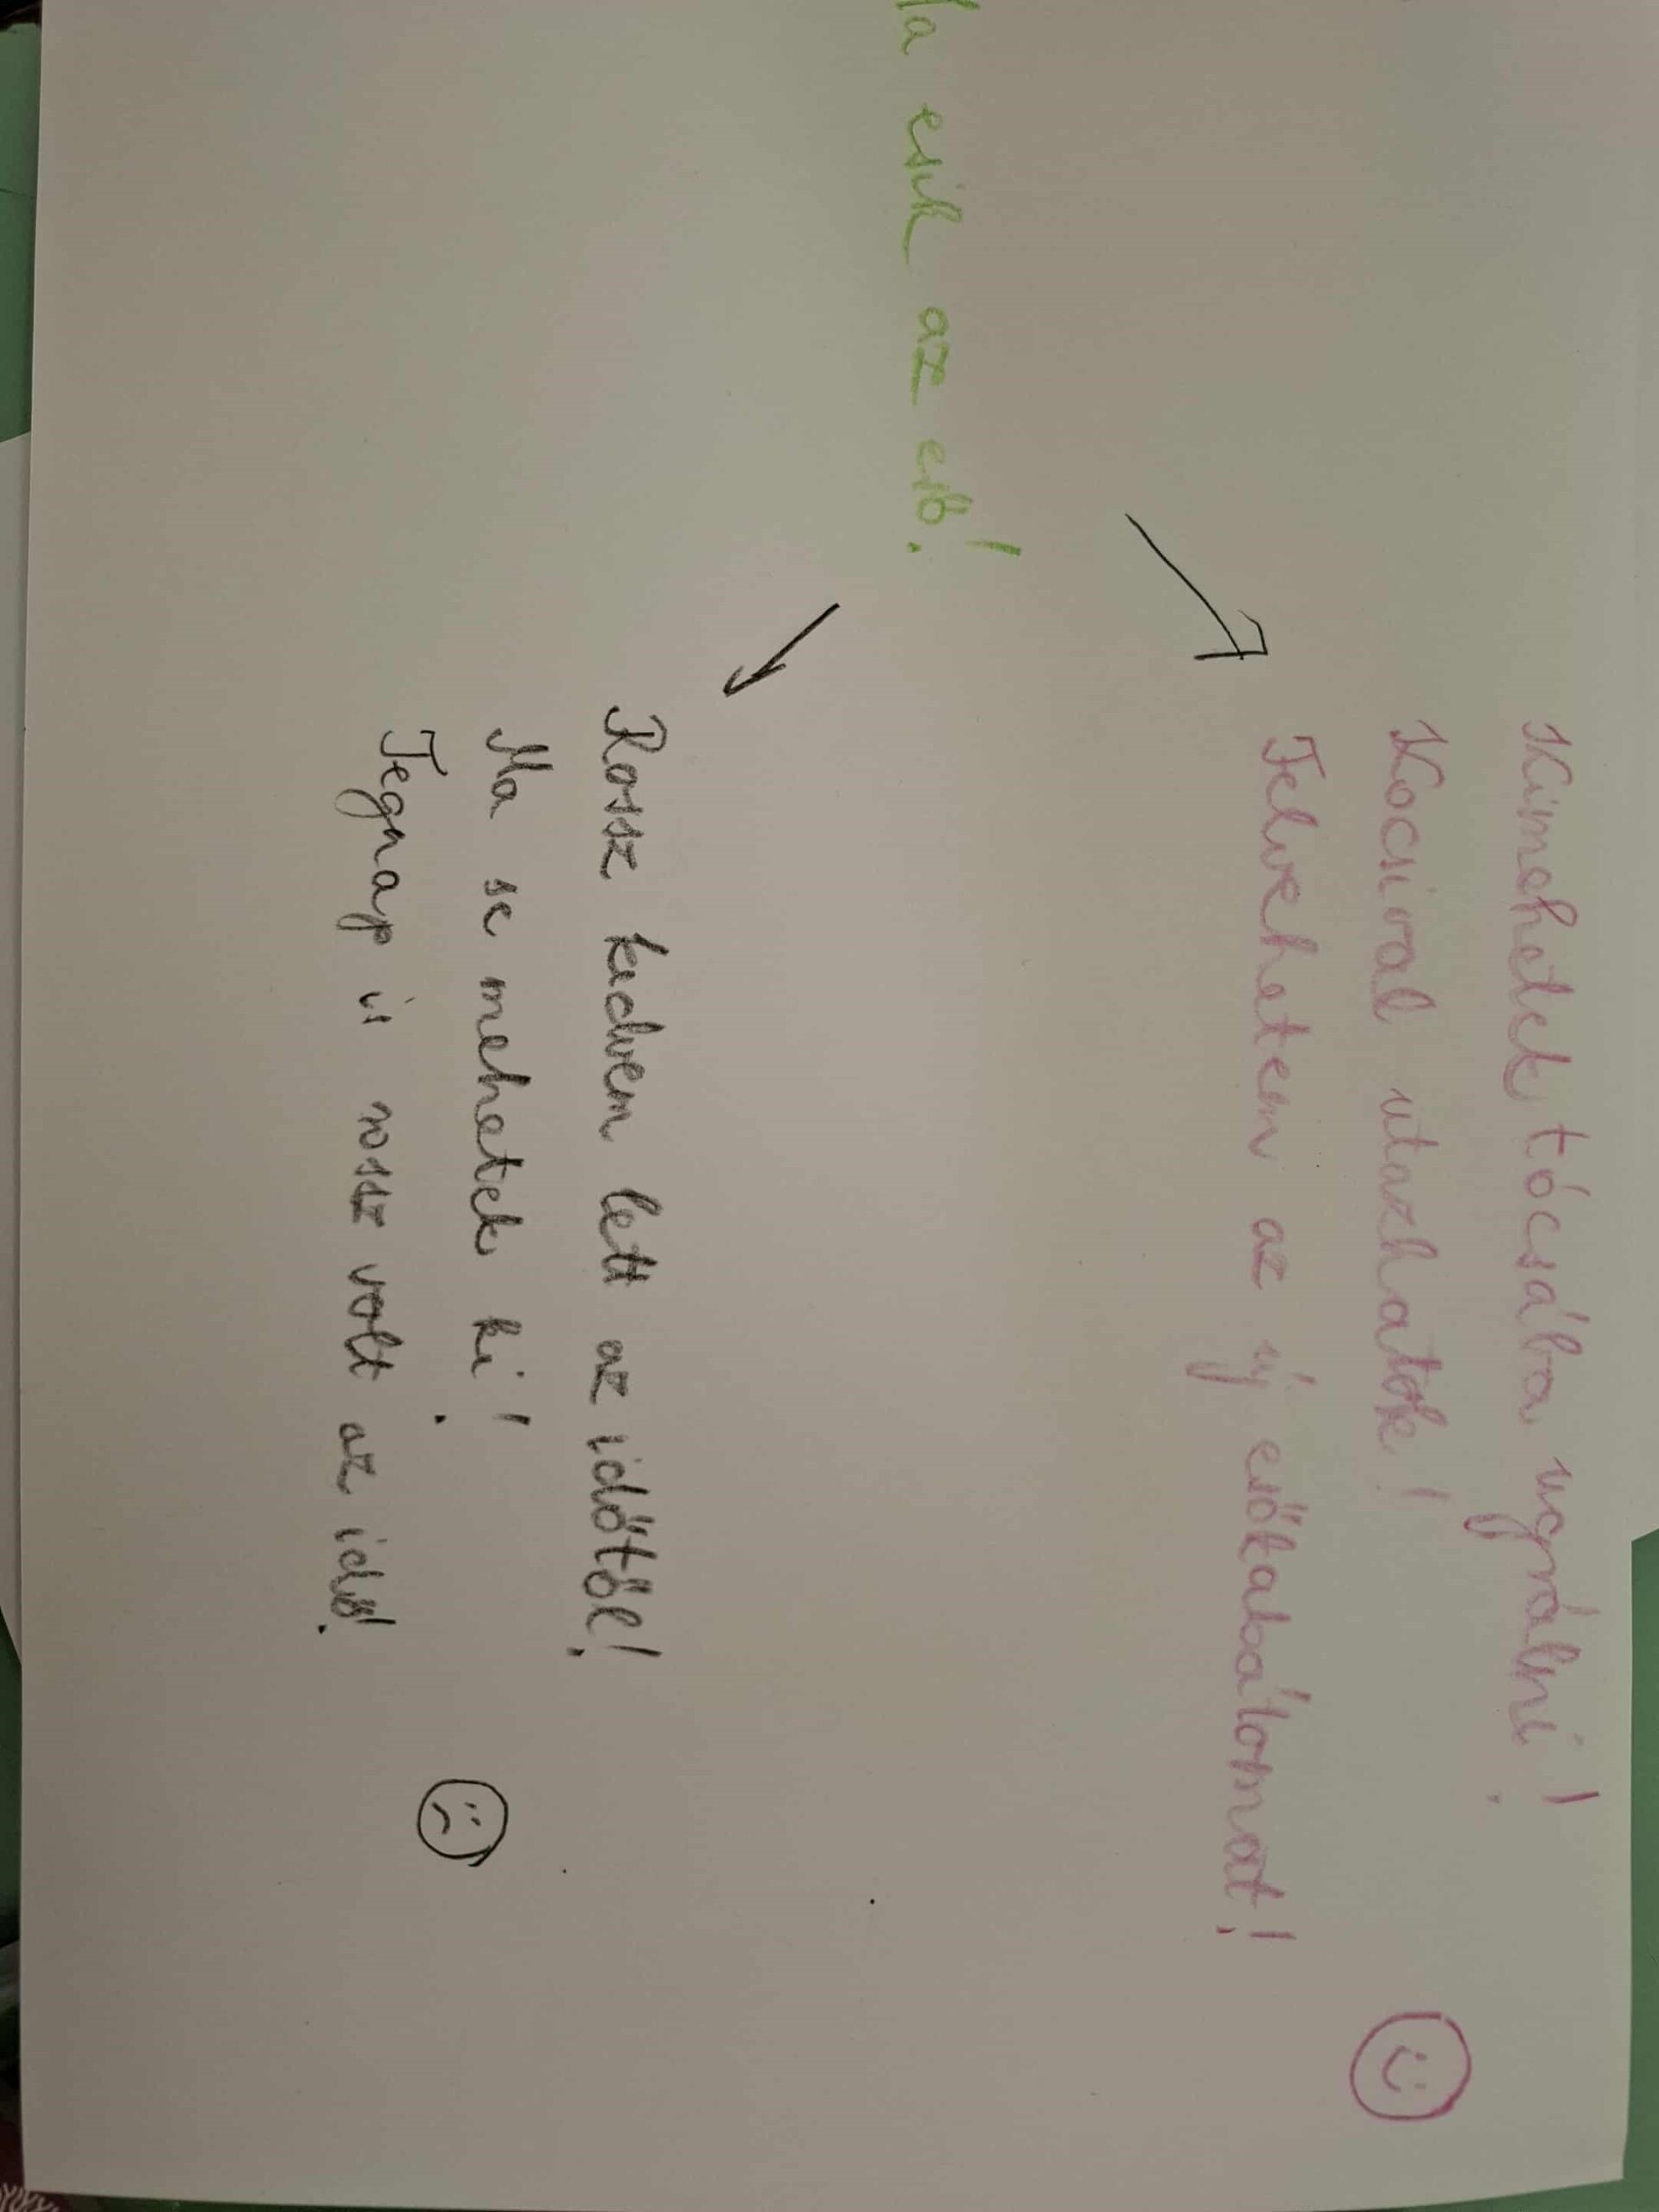 Kimehetek tócsába ugrálni!
Kocsival utazhatok!
Felvehetem az új esőkabátomat!
esik az eső!
Rossz kedvem lett az időtől!
Ma se mehetek ki!
Tegnap is rossz volt az idő!